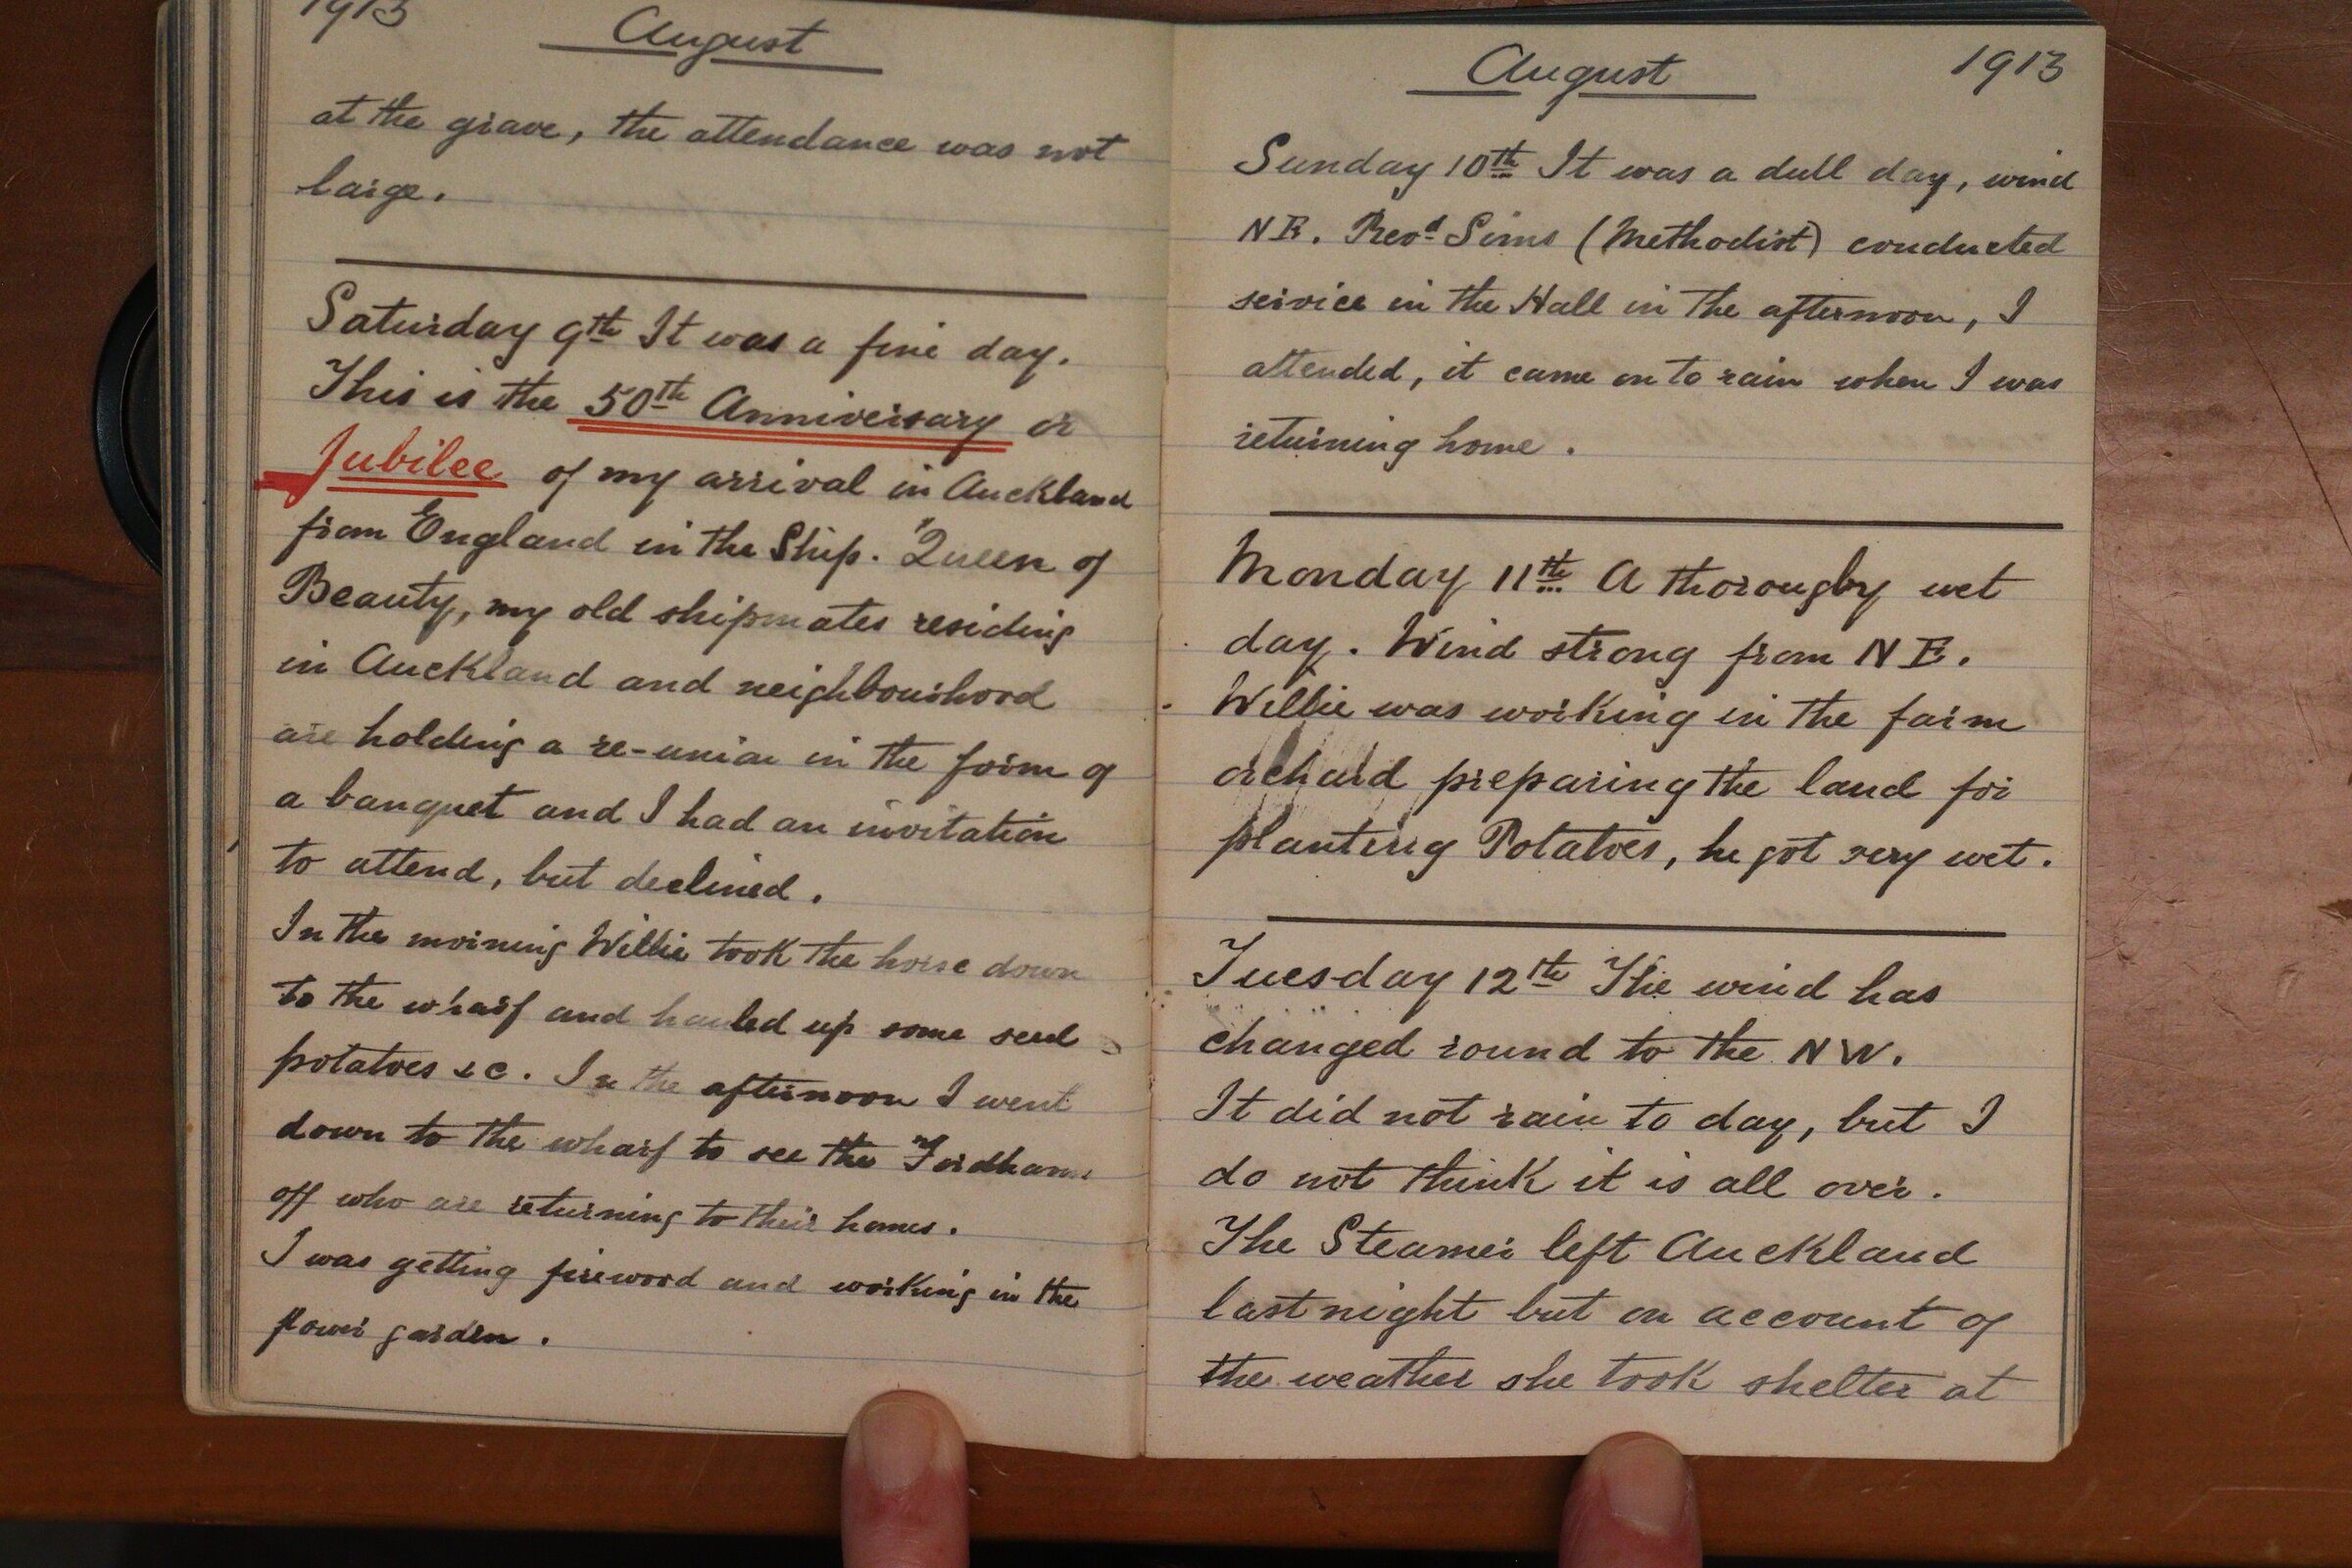 1913 August
at the grave, the attendance was not
large.
Saturday 9th It was a fine day.
This is the 50th Anniversary or
Jubilee of my arrival in Auckland
from England in the Ship. "Queen of
Beauty, my old shipmates residing
in Auckland and neighbourhood
are holding a re-union in the form of
a banquet and I had an invitation
to attend, but declined.
In the morning Willie took the horse down
to the wharf and hauled up some seed
potatoes &c. In the afternoon I went
down to the wharf to see the Fordhams
off who are returning to their homes.
I was getting firewood and working in the
flower garden.
August 1913
Sunday 10th It was a dull day, wind
NE. Revd Sims (Methodist) conducted
service in the Hall in the afternoon, I
attended, it came on to rain when I was
returning home.
Monday 11th A thorougby wet
day. Wind strong from NE.
Willie was working in the farm
orchard preparing the land for
planting Potatoes, he got very wet.
Tuesday 12th The wind has
changed round to the NW.
It did not rain to day, but I
do not think it is all over.
The Steamer left Auckland
last night but on account of
the weather she took shelter at